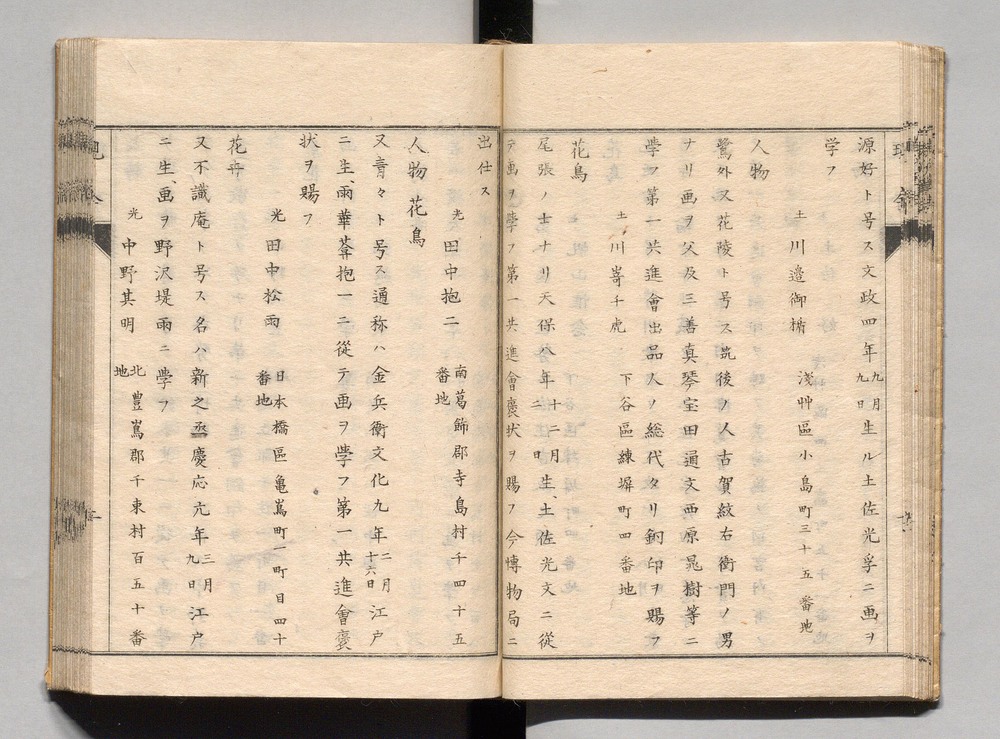 源好ト号ス文政四年九月九日生ル土佐光孚ニ画ヲ
学フ
土 川邉御楯 淺艸區小島町三十五番地
人物
鷺外又花陵ト号ス筑後ノ人古賀紋右衛門ノ男
ナリ画ヲ父及三善真琴宝田通文西原晁樹等ニ
學フ第一共進會出品人ノ総代タリ銅印ヲ賜フ
土 川嵜千虎 下谷區練塀町四番地
花鳥
尾張ノ士ナリ天保八年十二月二日生、土佐光文ニ從
テ画ヲ學フ第一共進會褒状ヲ賜フ今博物局ニ
出仕ス
光 田中抱二 南葛飾郡寺島村千四十五番地
人物 花鳥
又青々ト号ス通称ハ金兵衛文化九年二月十六日江戸
ニ生、雨華葊抱一ニ從テ画ヲ學フ第一共進會褒
状ヲ賜フ
光 田中松雨 日本橋區亀嶌町一町目四十番地
花卉
又不識庵ト号ス名ハ新之丞慶応元年三月九日江戸
ニ生、画ヲ野沢堤雨ニ學フ
光 中野其明 北豊嶌郡千束村百五十番地